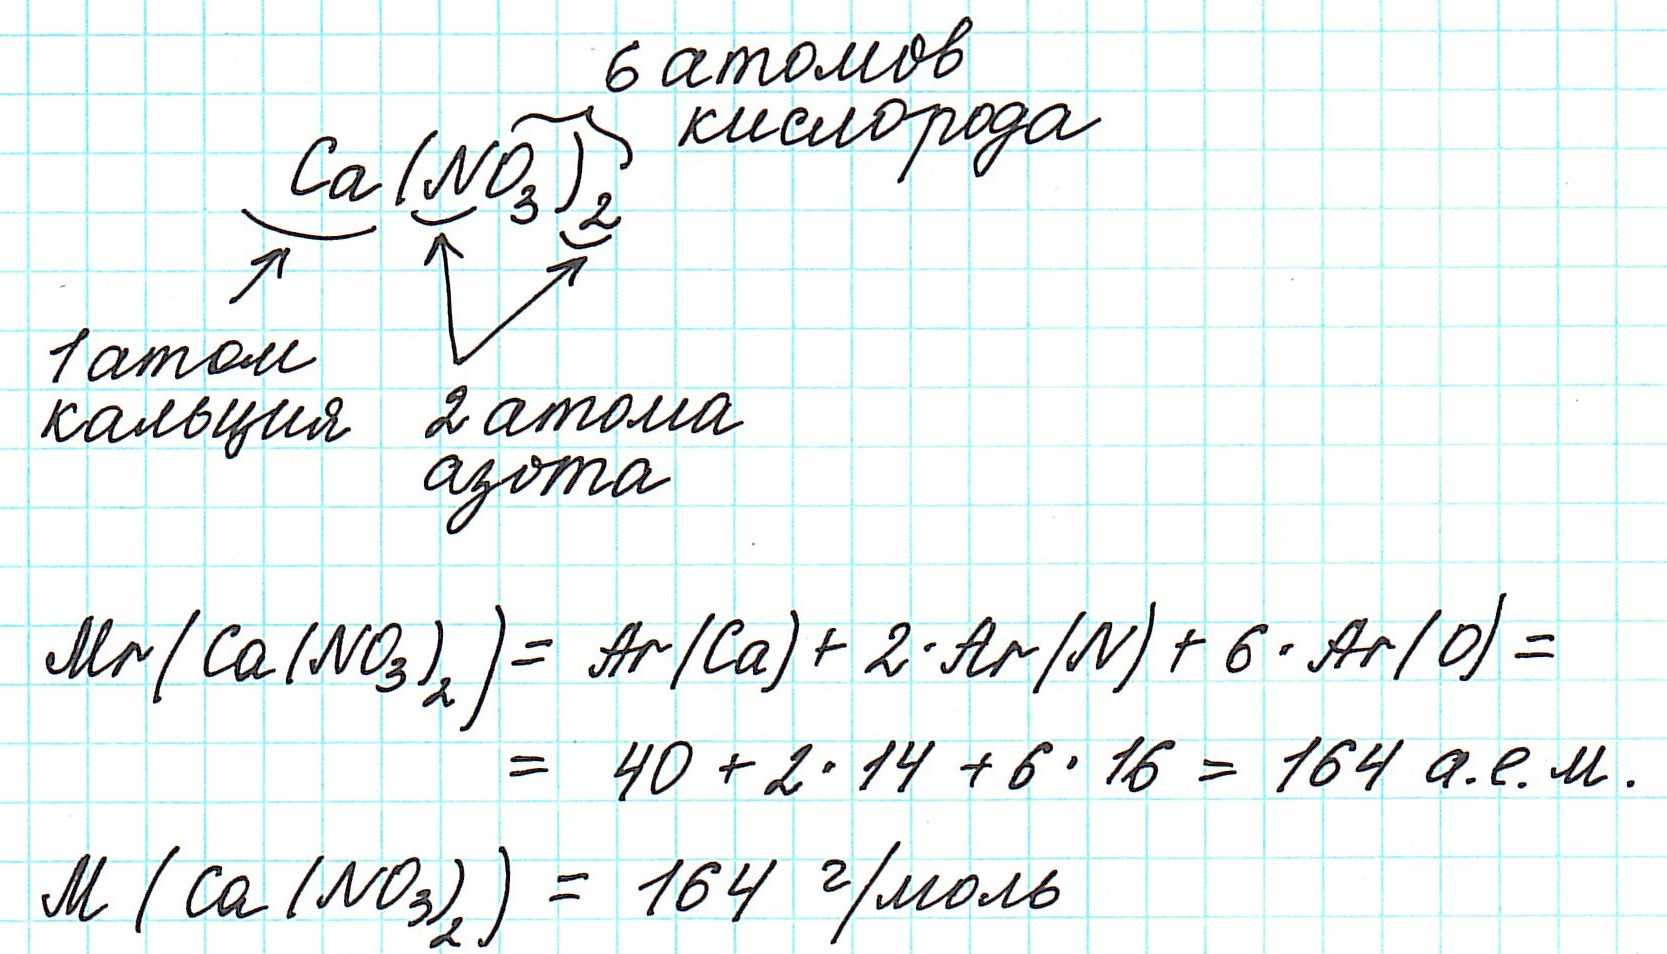 6 атомов
кислорода
Ca(NO₃)₂
1 атом
кальция
2 атома
азота
Mr(Ca(NO₃)₂) = Ar(Ca) + 2·Ar(N) + 6·Ar(O) =
= 40 + 2·14 + 6·16 = 164 а.е.м.
M(Ca(NO₃)₂) = 164 г/моль